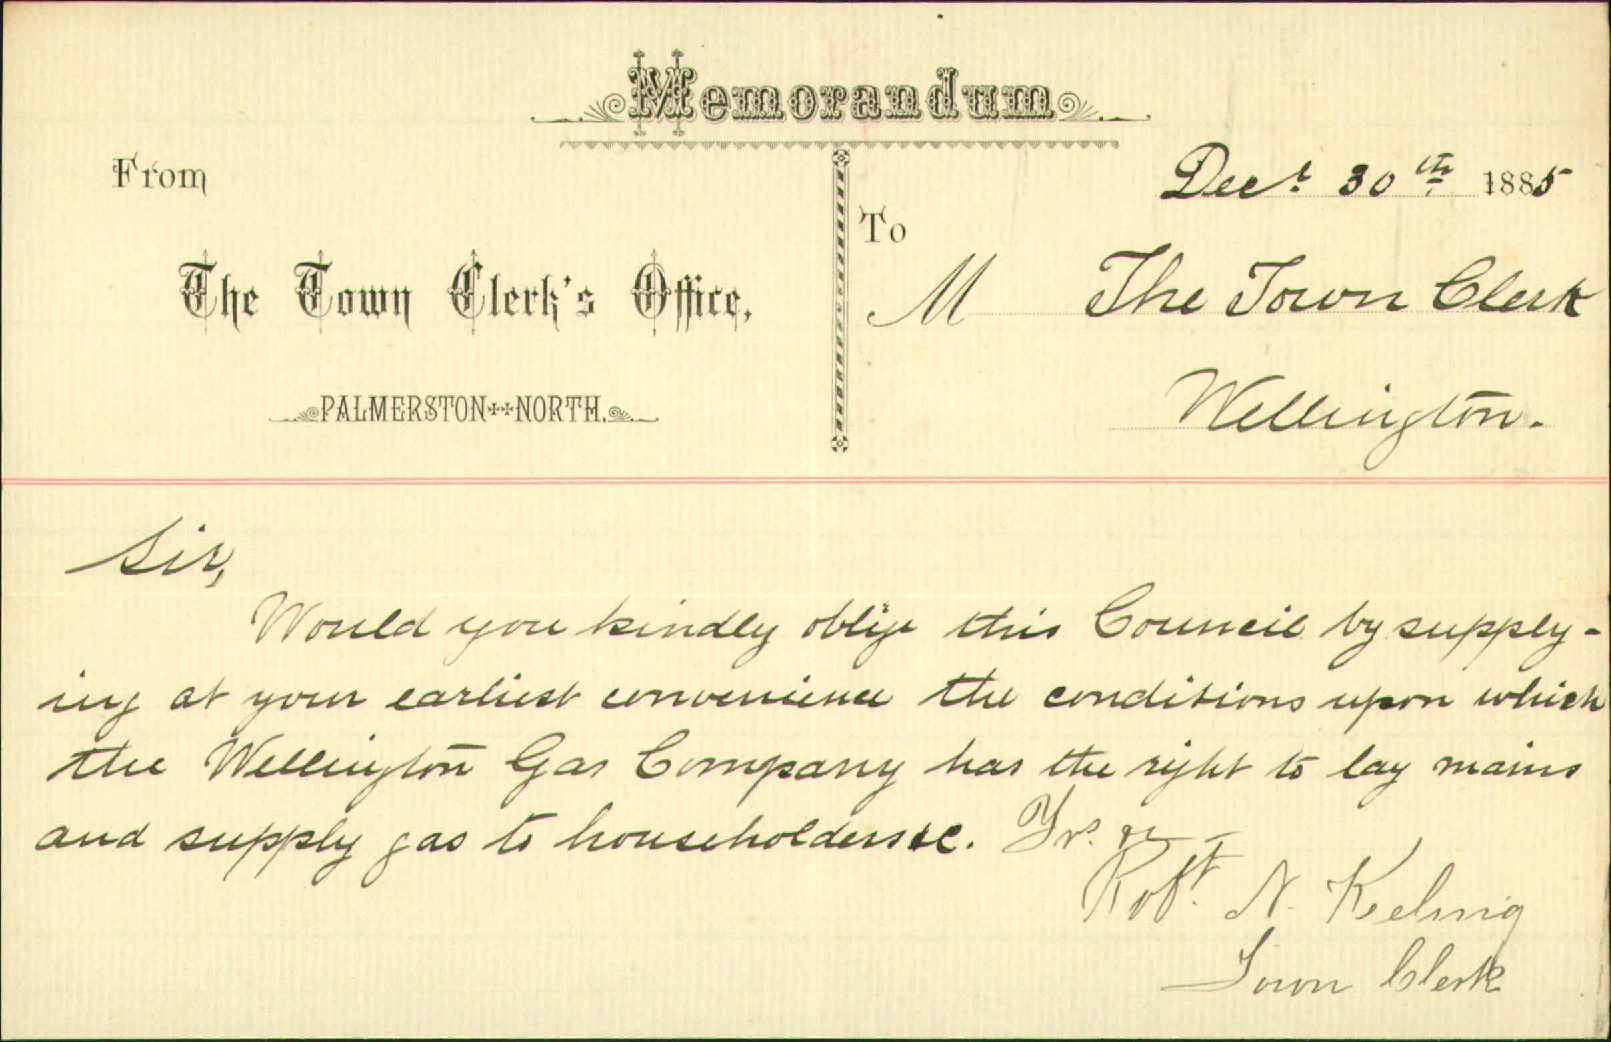 Memorandum
From
The Town Clerk's Office,
PALMERSTON NORTH.
Decr. 30th 1885
To
M The Town Clerk
Wellington.
Sir,
Would you kindly oblige this Council by supply-
ing at your earliest convenience the conditions upon which
the Wellington Gas Company has the right to lay mains
and supply gas to householders &c. Yrs.
Robt. N. Keeling
Town Clerk